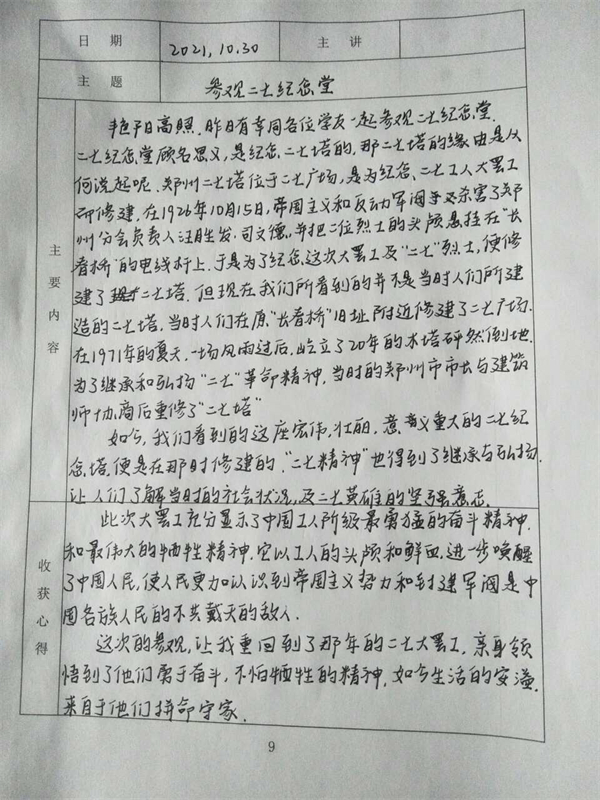 日 期 2021.10.30 主 讲
主 题 参观二七纪念堂
主要内容
艳阳高照,昨日有幸同各位学友一起参观二七纪念堂.
二七纪念堂顾名思义,是纪念二七塔的,那二七塔的缘由是从
何说起呢.郑州二七塔位于二七广场,是为纪念二七工人大罢工
而修建,在1926年10月15日,帝国主义和反动军阀杀害了郑
州分会负责人汪胜发、司文德,并把二位烈士的头颅悬挂在“长
春桥”的电线杆上.于是为了纪念这次大罢工及“二七”烈士,便修
建了二七塔.但现在我们所看到的并不是当时人们所建
造的二七塔.当时人们在原“长春桥”旧址附近修建了二七广场.
在1971年的夏天,一场风雨过后,屹立了20年的木塔砰然倒地.
为了继承和弘扬“二七”革命精神,当时的郑州市市长与建筑
师协商后重修了“二七塔”
如今,我们看到的这座宏伟,壮丽,意义重大的二七纪
念塔,便是在那时修建的.“二七精神”也得到了继承与弘扬.
让人们了解当时的社会状况,及二七英雄的坚强意志.
收获心得
此次大罢工充分显示了中国工人阶级最勇猛的奋斗精神.
和最伟大的牺牲精神.它以工人的头颅和鲜血,进一步唤醒
了中国人民,使人民更加认识到帝国主义势力和封建军阀是中
国各族人民的不共戴天的敌人.
这次的参观,让我重回到了那年的二七大罢工,亲身领
悟到了他们勇于奋斗,不怕牺牲的精神,如今生活的安溢,
来自于他们拼命守家.
9